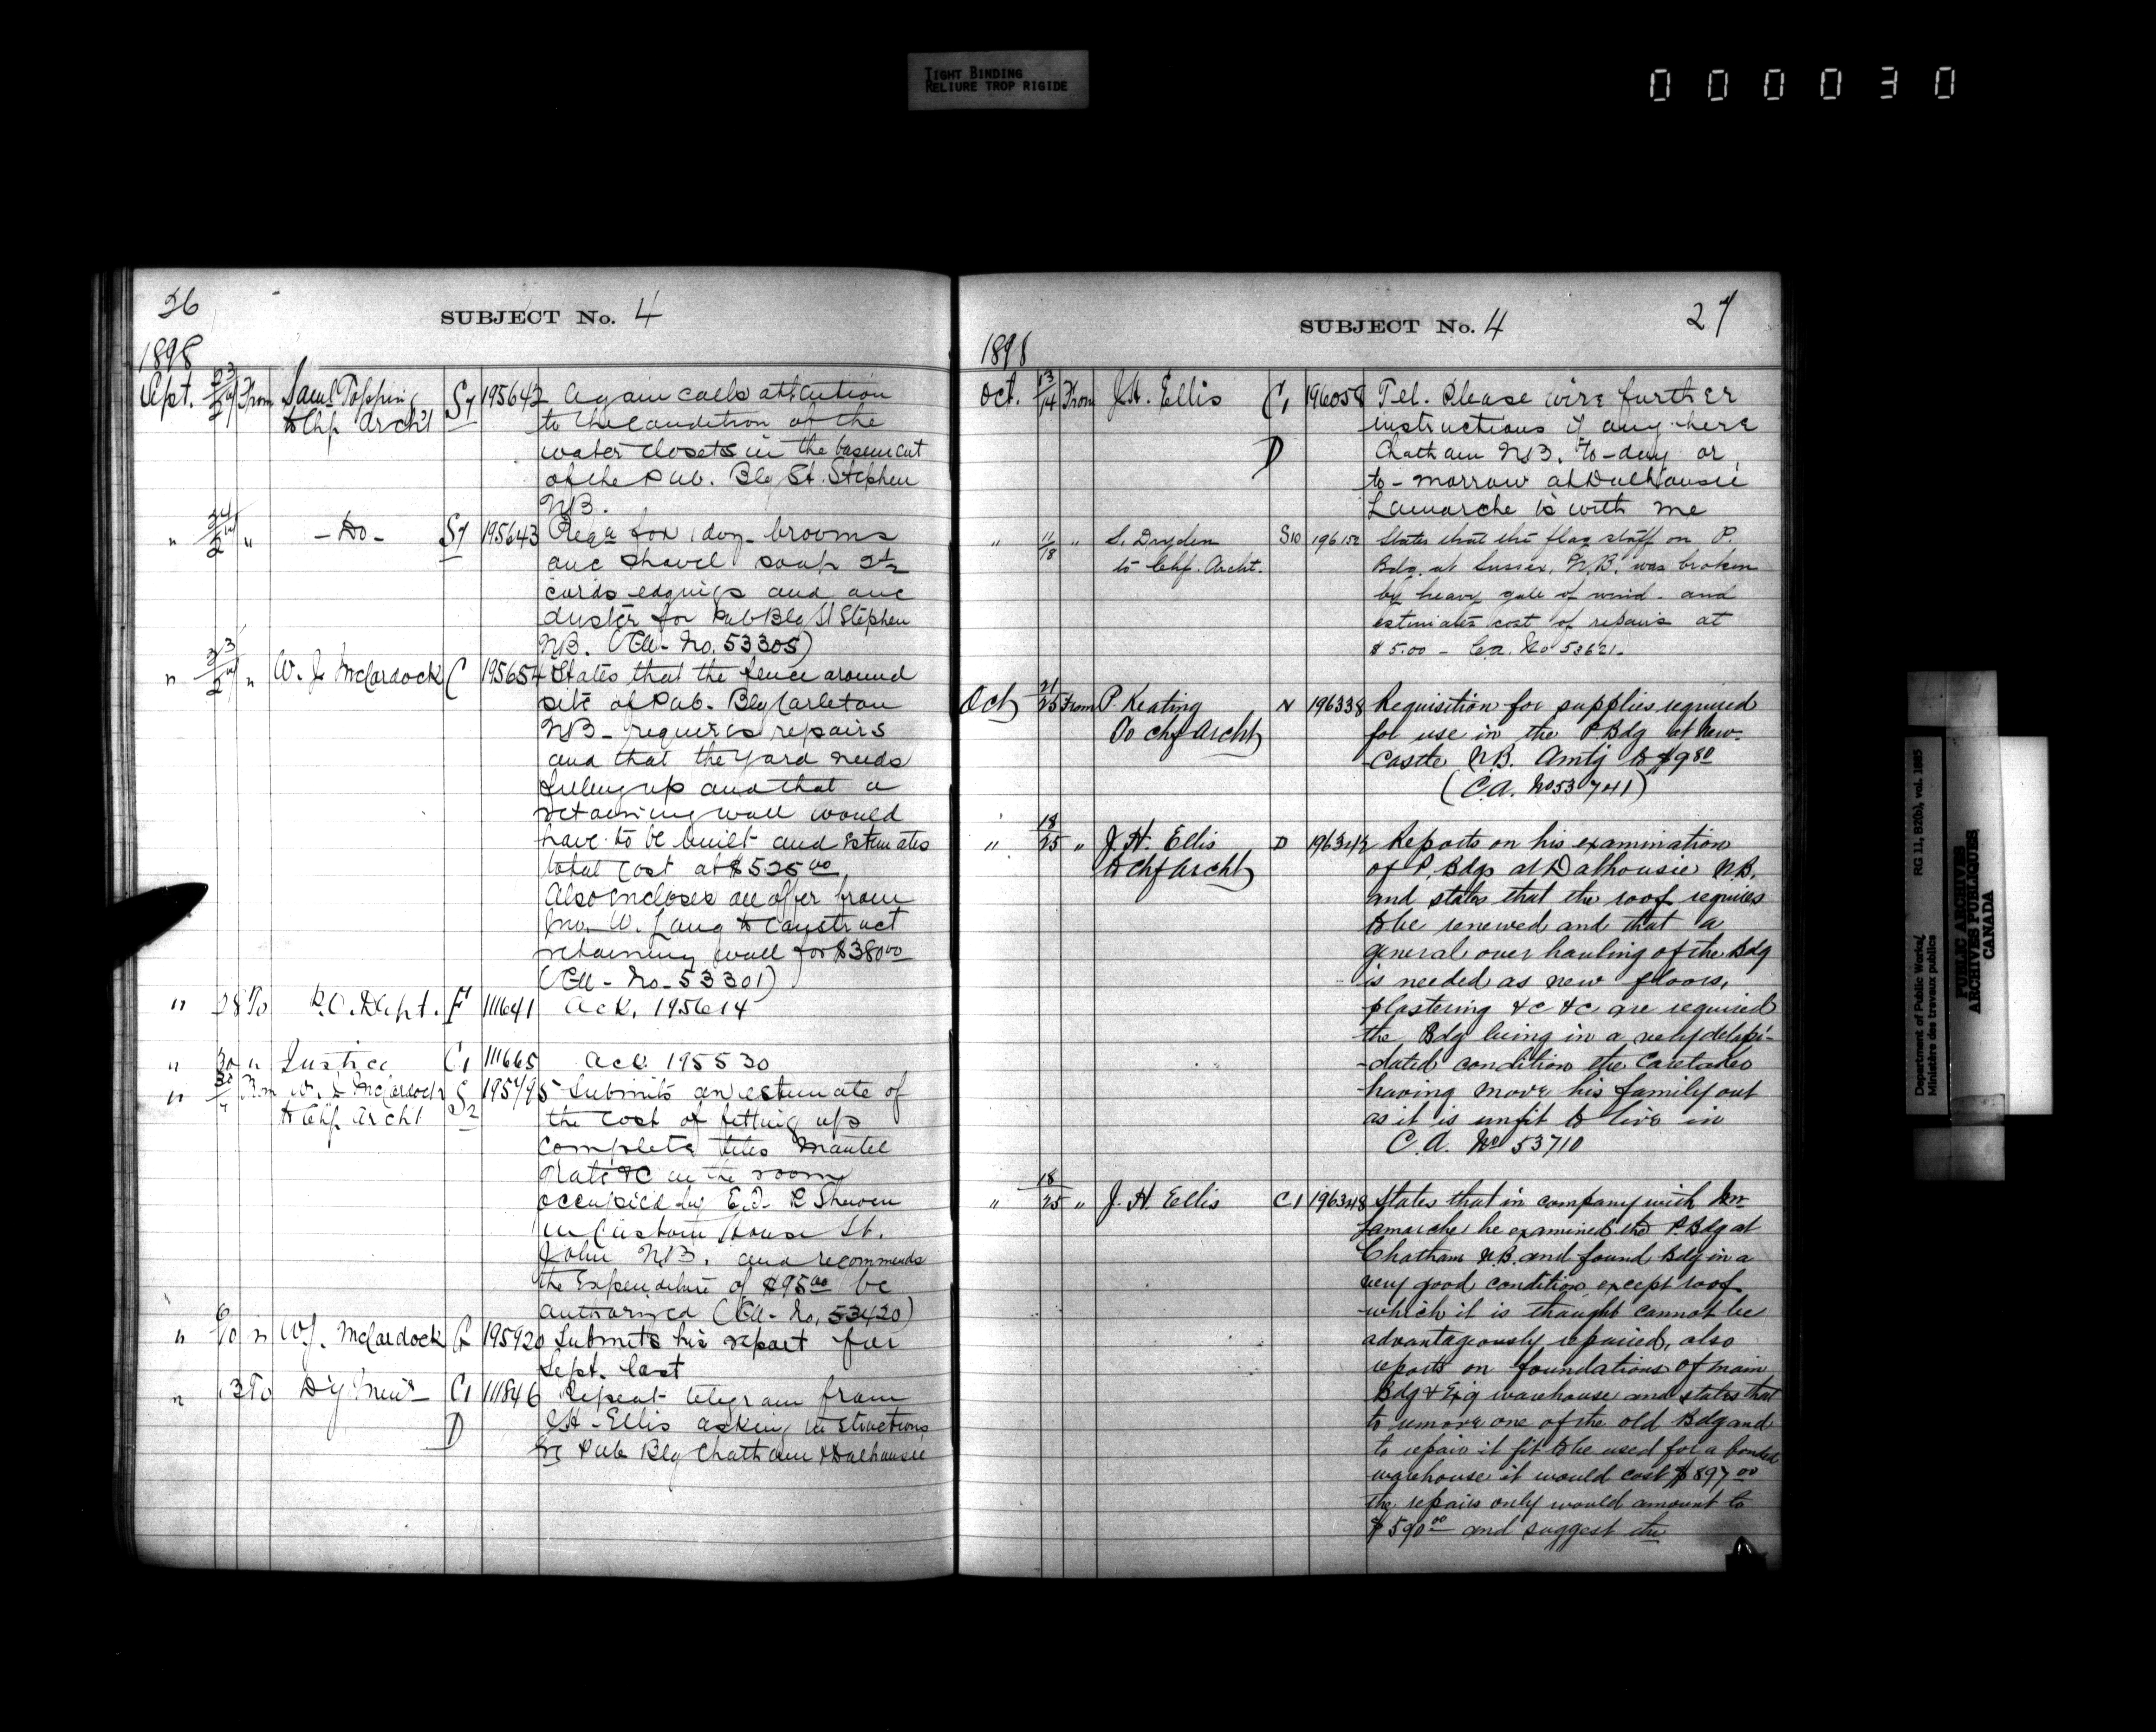 TIGHT BINDING
RELIURE TROP RIGIDE
000030
26
SUBJECT No. 4
1898
Sept. 23/27 From Saml Topping S7 195642 Again calls attention
to Chf Archt to the condition of the
water closets in the basement
of the Pub. Blg St. Stephen
NB.
" 24/27 " - Do - S7 195643 Reqn for 1 doz brooms
one shovel soap 2½
cords edgings and one
duster for Pub Blg St Stephen
NB. (CA - No. 53305)
" 23/27 " W. J. McCordock C 195654 States that the fence around
site of Pub. Blg Carleton
NB - requires repairs
and that the yard needs
filling up and that a
retaining wall would
have to be built and estimates
total cost at $525 00
Also encloses an offer from
Jno. W. Long to construct
retaining wall for $380 00
(CA - No. 53301)
" 28 To P.O. Dept. F 111641 Ack. 195614
" 30 " Justice C1 111665 Ack. 195530
" 30 From W. J. McCordock S2 195795 Submits an estimate of
to Chf Archt the cost of fitting up
complete tiles mantel
Grate &c in the room
occupied by E. T. P. Shewen
in Custom House St.
John NB. and recommends
the Expenditure of $95 00 be
authorized (CA - No. 53420)
" 6/10 " W. J. McCordock 195920 Submits his report for
Sept. last
" 13 To Dy Minr C1 111846 Repeat telegram from
D J H - Ellis asking instructions
re Pub Blg Chatham & Dalhousie
SUBJECT No. 4
27
1898
Oct. 13/14 From J.H. Ellis C1 196058 Tel. Please wire further
instructions if any here
D Chatham N.B. to-day or
to-morrow at Dalhousie
Lamarche is with me
" 11/18 " S. Dryden S10 196152 States that the flag staff on P.
to Chf. Archt. Bdg. at Sussex, N.B. was broken
by heavy gale of wind - and
estimates cost of repairs at
$5.00 - C.A. No 53621.
Oct 21/25 From P. Keating N 196338 Requisition for supplies required
To Chf Archt for use in the P. Bdg at New-
castle N.B. Amtg to $9 80
(C.A. No 53741)
" 18/25 " J. H. Ellis D 196342 Reports on his examination
to Chf Archt of P. Bdgs at Dalhousie N.B.
and states that the roof requires
to be renewed and that a
general over hauling of the Bdg
is needed as new floors,
plastering &c &c are required
the Bdg being in a very delapi-
-dated condition the Caretaker
having move his family out
as it is unfit to live in
C.A. No 53710
" 18/25 " J. H. Ellis C1 196348 States that in company with Mr
Lamarche he examined the P. Bdg at
Chatham N.B. and found Bdg in a
very good condition except roof
which it is thought cannot be
advantageously repaired, also
reports on foundations of main
Bdg & Ex'g warehouse and states that
to remove one of the old Bdg and
to repair it fit to be used for a bonded
warehouse it would cost $897 00
the repairs only would amount to
$590 00 and suggest the
Department of Public Works/
Ministère des travaux publics
RG 11, B2(b), vol. 1885
PUBLIC ARCHIVES
ARCHIVES PUBLIQUES
CANADA